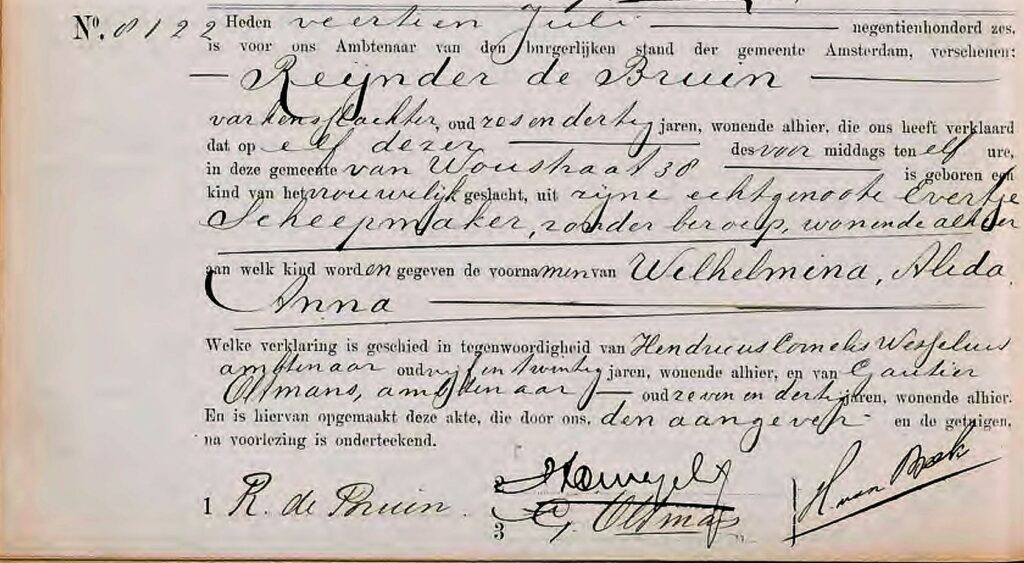 No. 8122 Heden veertien Juli negentienhonderd zes,
is voor ons Ambtenaar van den burgerlijken stand der gemeente Amsterdam, verschenen:
Reijnder de Bruin
varkensslachter, oud zes en dertig jaren, wonende alhier, die ons heeft verklaard
dat op elf dezer des voor middags ten elf ure,
in deze gemeente van Woustraat 38 is geboren een
kind van het vrouwelijk geslacht, uit zijne echtgenoote Evertje
Scheepmaker, zonder beroep, wonende alhier
aan welk kind worden gegeven de voornamen van Wilhelmina, Alida
Anna
Welke verklaring is geschied in tegenwoordigheid van Hendricus Cornelis Wesselius
ambtenaar oud vijf en twintig jaren, wonende alhier, en van Gautier
Oltmans, ambtenaar oud zeven en dertig jaren, wonende alhier.
En is hiervan opgemaakt deze akte, die door ons, den aangever en de getuigen,
na voorlezing is onderteekend.
1 R. de Bruin.
2
3 G. Oltmans
H. van Beek